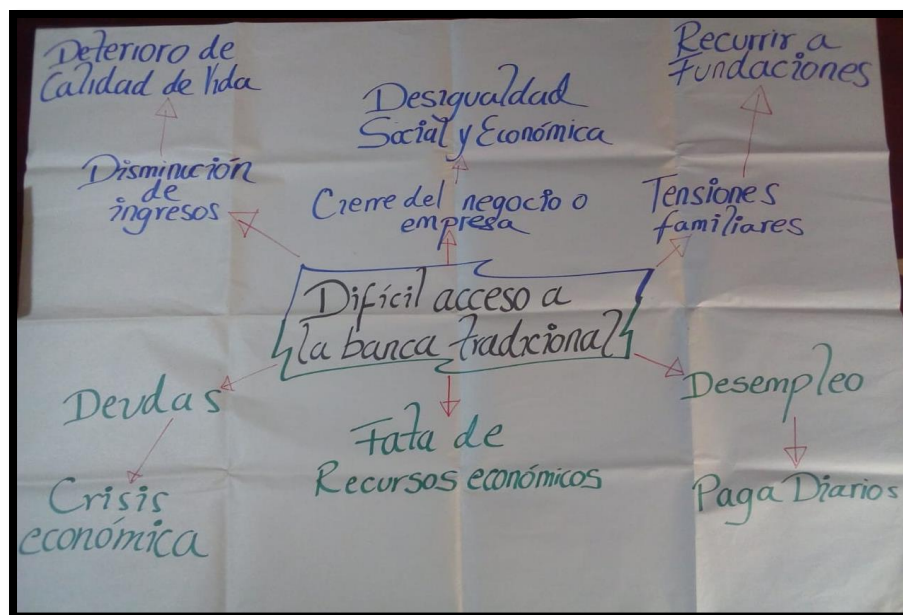 Deterioro de
Calidad de Vida
Desigualdad
Social y Económica
Recurrir a
Fundaciones
Disminución
de
ingresos
Cierre del negocio o
empresa
Tensiones
familiares
Difícil acceso a
la banca tradicional
Deudas
Fata de
Recursos económicos
Desempleo
Crisis
económica
Paga Diarios